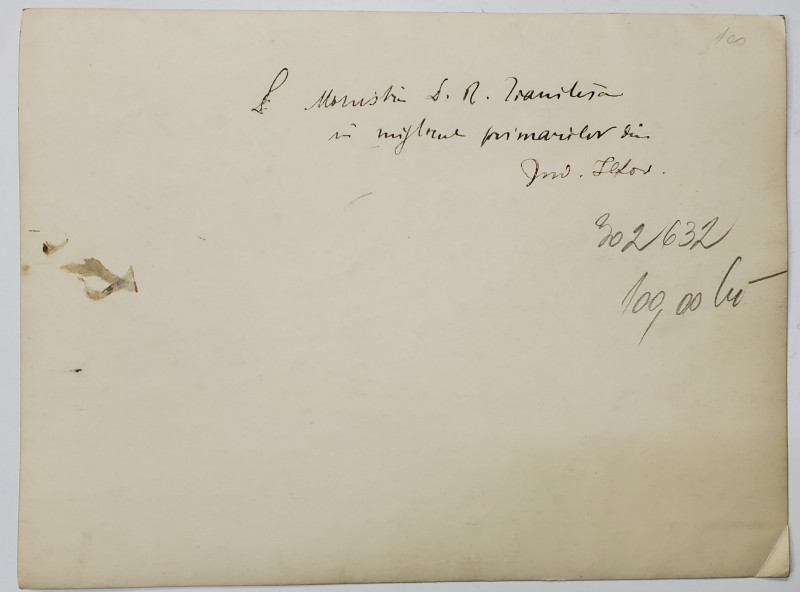 100
D. Ministru D. R. Ioanitescu
în mijlocul primarilor din
Jud. Ilfov.
302632
100,00 lei